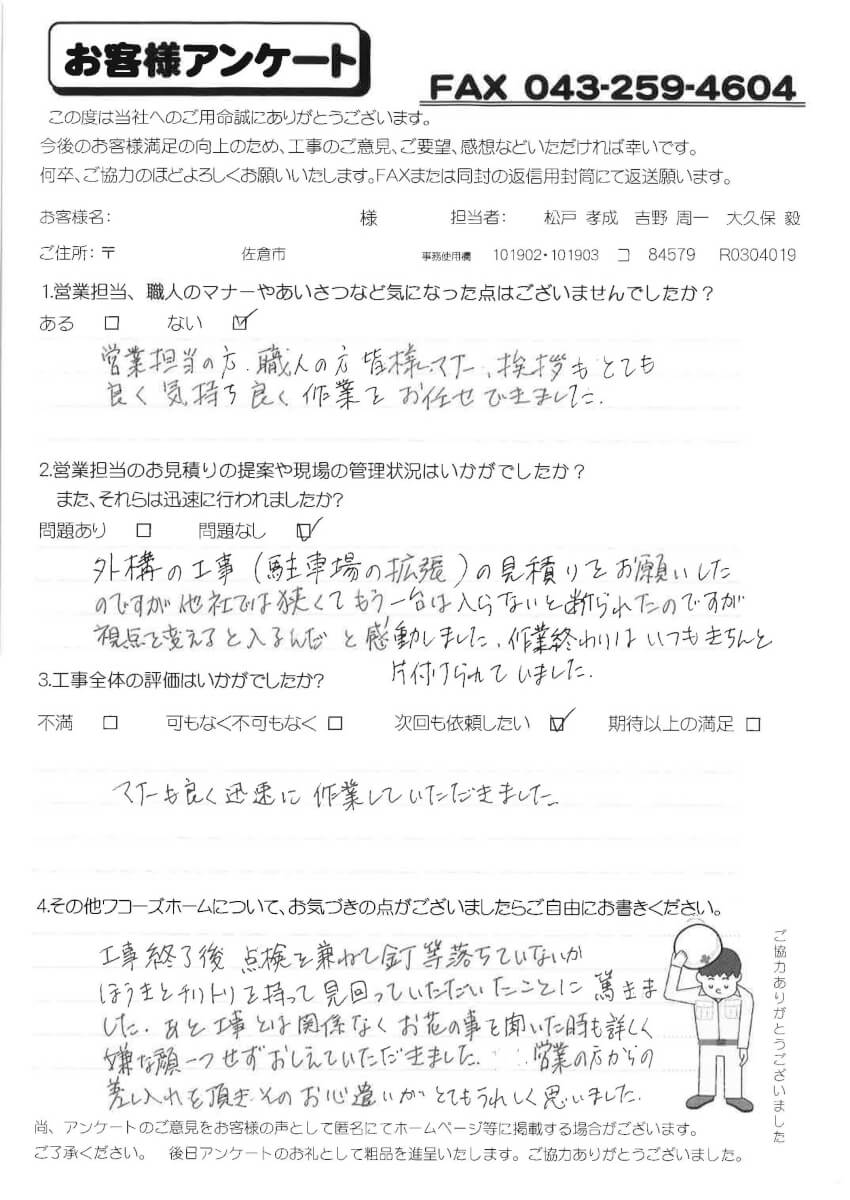 お客様アンケート
FAX 043-259-4604
この度は当社へのご用命誠にありがとうございます。
今後のお客様満足の向上のため、工事のご意見、ご要望、感想などいただければ幸いです。
何卒、ご協力のほどよろしくお願いいたします。FAXまたは同封の返信用封筒にて返送願います。
お客様名： 様 担当者： 松戸 孝成 吉野 周一 大久保 毅
ご住所：〒 佐倉市 事務使用欄 101902・101903 コ 84579 R0304019
1.営業担当、職人のマナーやあいさつなど気になった点はございませんでしたか？
ある □ ない ☑
営業担当の方、職人の方 皆様、マナー、挨拶もとても
良く気持ち良く作業をお任せできました。
2.営業担当のお見積りの提案や現場の管理状況はいかがでしたか？
また、それらは迅速に行われましたか？
問題あり □ 問題なし ☑
外構の工事（駐車場の拡張）の見積りをお願いした
のですが他社では狭くてもう一台は入らないと断られたのですが
視点を変えると入るんだと感動しました。作業終わりはいつもきちんと
片付けられていました。
3.工事全体の評価はいかがでしたか？
不満 □ 可もなく不可もなく □ 次回も依頼したい ☑ 期待以上の満足 □
マナーも良く迅速に作業していただきました。
4.その他ワコーズホームについて、お気づきの点がございましたらご自由にお書きください。
工事終了後 点検を兼ねて釘等落ちていないか
ほうきとチリトリを持って見回っていただいたことに驚きま
した。あと工事とは関係なくお花の事を聞いた時も詳しく
嫌な顔一つせずおしえていただきました。営業の方からの
差し入れを頂きそのお心遣いがとてもうれしく思いました。
ご協力ありがとうございました
尚、アンケートのご意見をお客様の声として匿名にてホームページ等に掲載する場合がございます。
ご了承ください。 後日アンケートのお礼として粗品を進呈いたします。ご協力ありがとうございました。